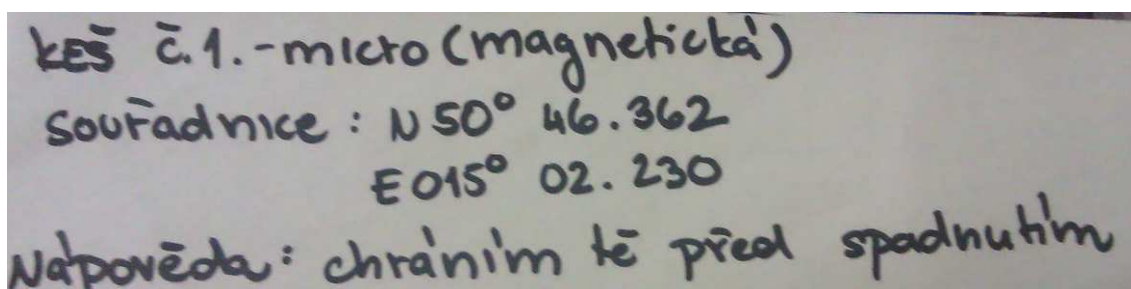 KEŠ č.1.-micro (magnetická)
souřadnice : N 50° 46.362
E 015° 02.230
Nápověda: chráním tě před spadnutím